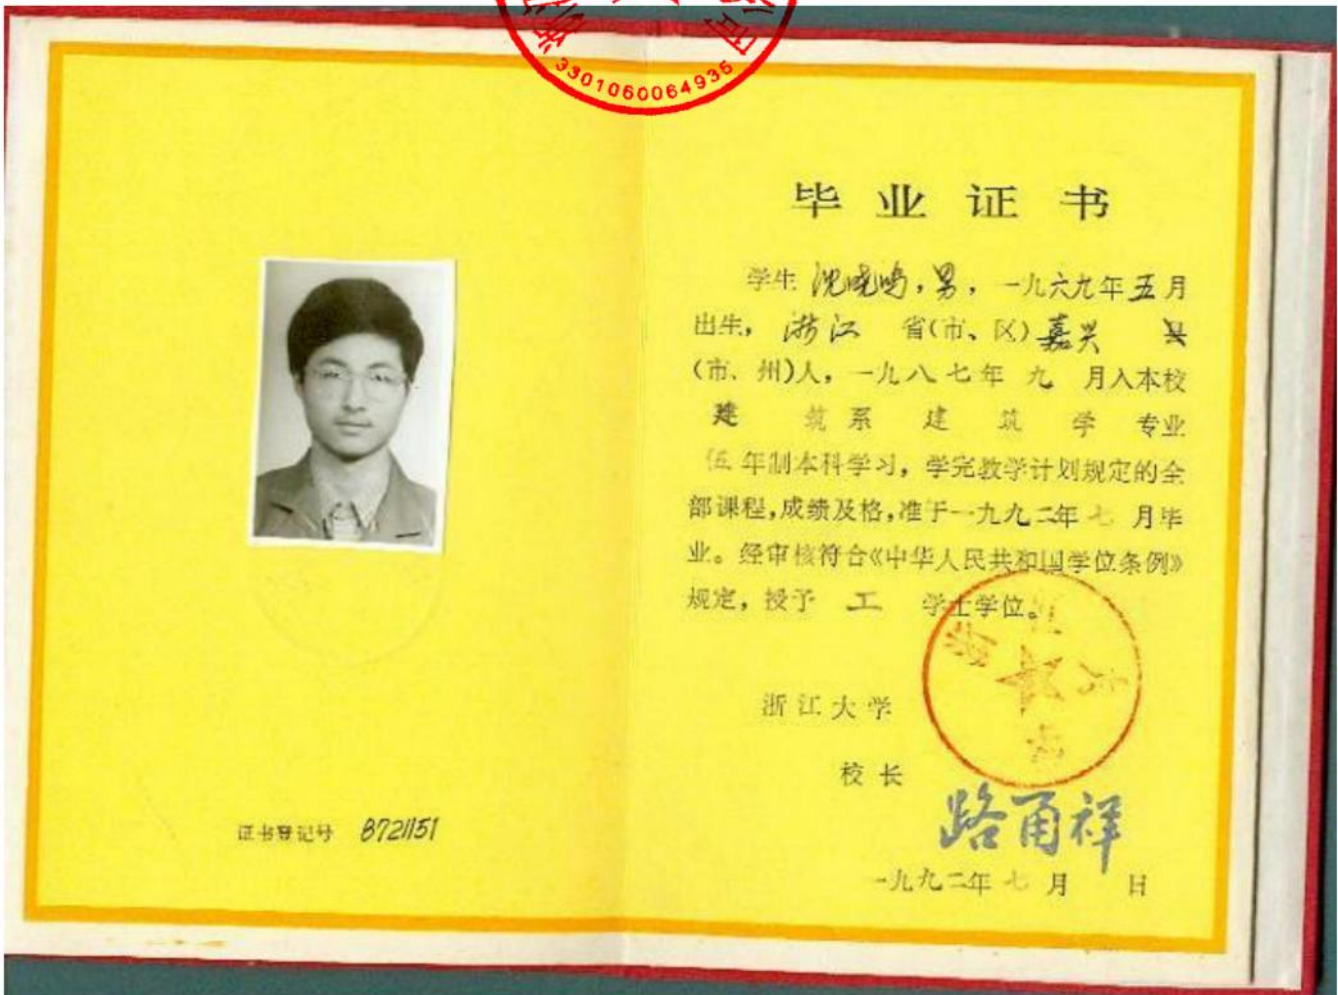 3301060064935
毕业证书
学生 沈晓鸣，男，一九六九年五月
出生， 浙江 省(市、区)嘉兴 县
(市、州)人，一九八七年 九 月入本校
建筑系建筑学专业
伍年制本科学习，学完教学计划规定的全
部课程，成绩及格，准于一九九二年七月毕
业。经审核符合《中华人民共和国学位条例》
规定，授予 工 学士学位。
浙江大学
校长
路甬祥
一九九二年七月 日
证书登记号 8721151